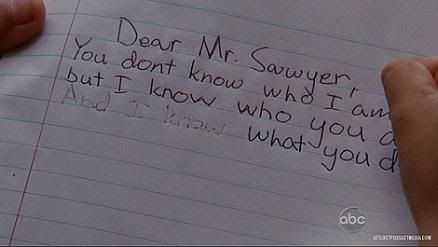 Dear Mr. Sawyer,
You dont know who I am
but I know who you a
And I know what you d
abc
GETLOSTPODCASTMEDIA.COM